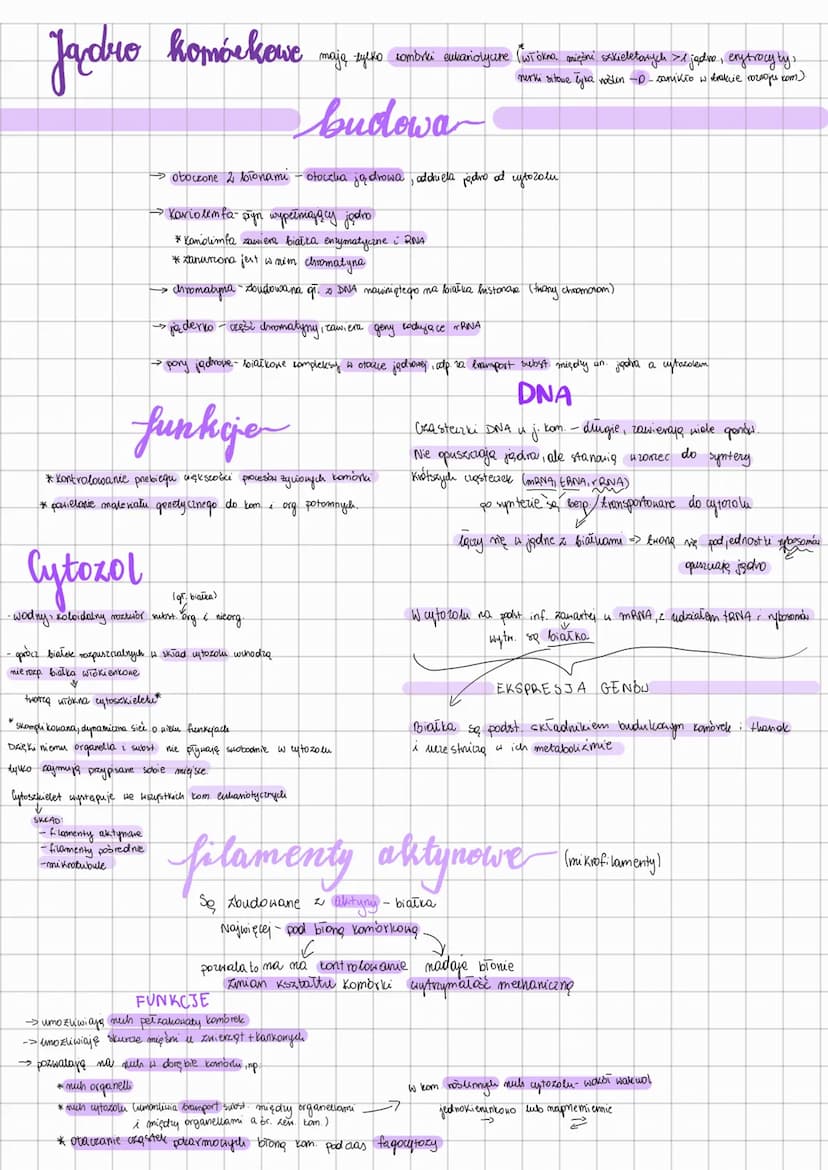 Jądro komórkowe
mają tylko komórki eukariotyczne (włókna mięśni szkieletowych >1 jądro, erytrocyty,
rurki sitowe łyka roślin –0– zanikło w trakcie rozwoju kom)
budowa
→ otoczone 2 błonami – otoczka jądrowa, oddziela jądro od cytozolu
→ kariolimfa – płyn wypełniający jądro
* kariolimfa zawiera białka enzymatyczne i RNA
* zanurzona jest w nim chromatyna
→ chromatyna – zbudowana gł. z DNA nawiniętego na białka histonowe (tworzy chromosom)
→ jąderko – część chromatyny, zawiera geny kodujące rRNA
→ pory jądrowe – białkowe kompleksy w otoczce jądrowej, odp. za transport subst. między wn. jądra a cytozolem
funkcje
* kontrolowanie przebiegu większości procesów życiowych komórki
* powielanie materiału genetycznego do kom i org potomnych.
DNA
Cząsteczki DNA w j. kom. – długie, zawierają wiele genów.
Nie opuszczają jądra, ale stanowią wzorzec do syntezy
krótszych cząsteczek (mRNA, tRNA, rRNA)
po syntezie są bezp./transportowane do cytozolu
łączy się w jądrze z białkami => tworzą się podjednostki rybosomów
opuszczają jądro
W cytozolu na podst inf. zawartej w mRNA, z udziałem tRNA i rybosomów
wytw. są białka
EKSPRESJA GENÓW
Białka są podst. składnikiem budulcowym komórek i tkanek
i uczestniczą w ich metabolizmie
Cytozol
(gł. białka)
- wodny, koloidalny roztwór subst. org. i nieorg.
- oprócz białek rozpuszczalnych w skład cytozolu wchodzą
nierozp. białka włókienkowe
tworzą włókna cytoszkieletu*
* skomplikowana, dynamiczna sieć o wielu funkcjach
Dzięki niemu organella i subst nie pływają swobodnie w cytozolu
tylko zajmują przypisane sobie miejsce.
Cytoszkielet występuje we wszystkich kom. eukariotycznych
SKŁAD:
- filamenty aktynowe
- filamenty pośrednie
- mikrotubule
filamenty aktynowe (mikrofilamenty)
Są zbudowane z aktyny – białka
Najwięcej – pod błoną komórkową
pozwala to na na kontrolowanie zmian kształtu komórki
nadaje błonie wytrzymałość mechaniczną
FUNKCJE
→ umożliwiają ruch pełzakowaty komórek
-> umożliwiają skurcze mięśni u zwierząt tkankowych
→ pozwalają na ruch w obrębie komórki, np.
* ruch organelli
* ruch cytozolu (umożliwia transport subst. między organellami
i między organellami a śr. zew. kom.)
w kom roślinnych ruch cytozolu – wokół wakuol
jednokierunkowo lub naprzemiennie
* otaczanie cząstek pokarmowych błoną kom. podczas fagocytozy